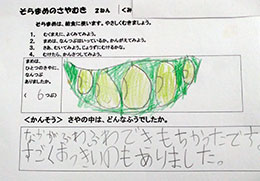 そらまめのさやむき 2ねん くみ
そらまめは、給食に使います。やさしくむきましょう。
1. むくまえに、よくみてみよう。
2. まめは、なんつぶはいっているか、かんがえてみよう。
3. さあ、むいてみよう。じょうずにむけるかな。
4. むけたら、かんさつしてみよう。
まめは、
ひとつのさやに、
なんつぶ
ありましたか。
( 6つぶ )
<かんそう> さやの中は、どんなふうでしたか。
なかがふわふわできもちかったです。
すごくおっきいのもありました。